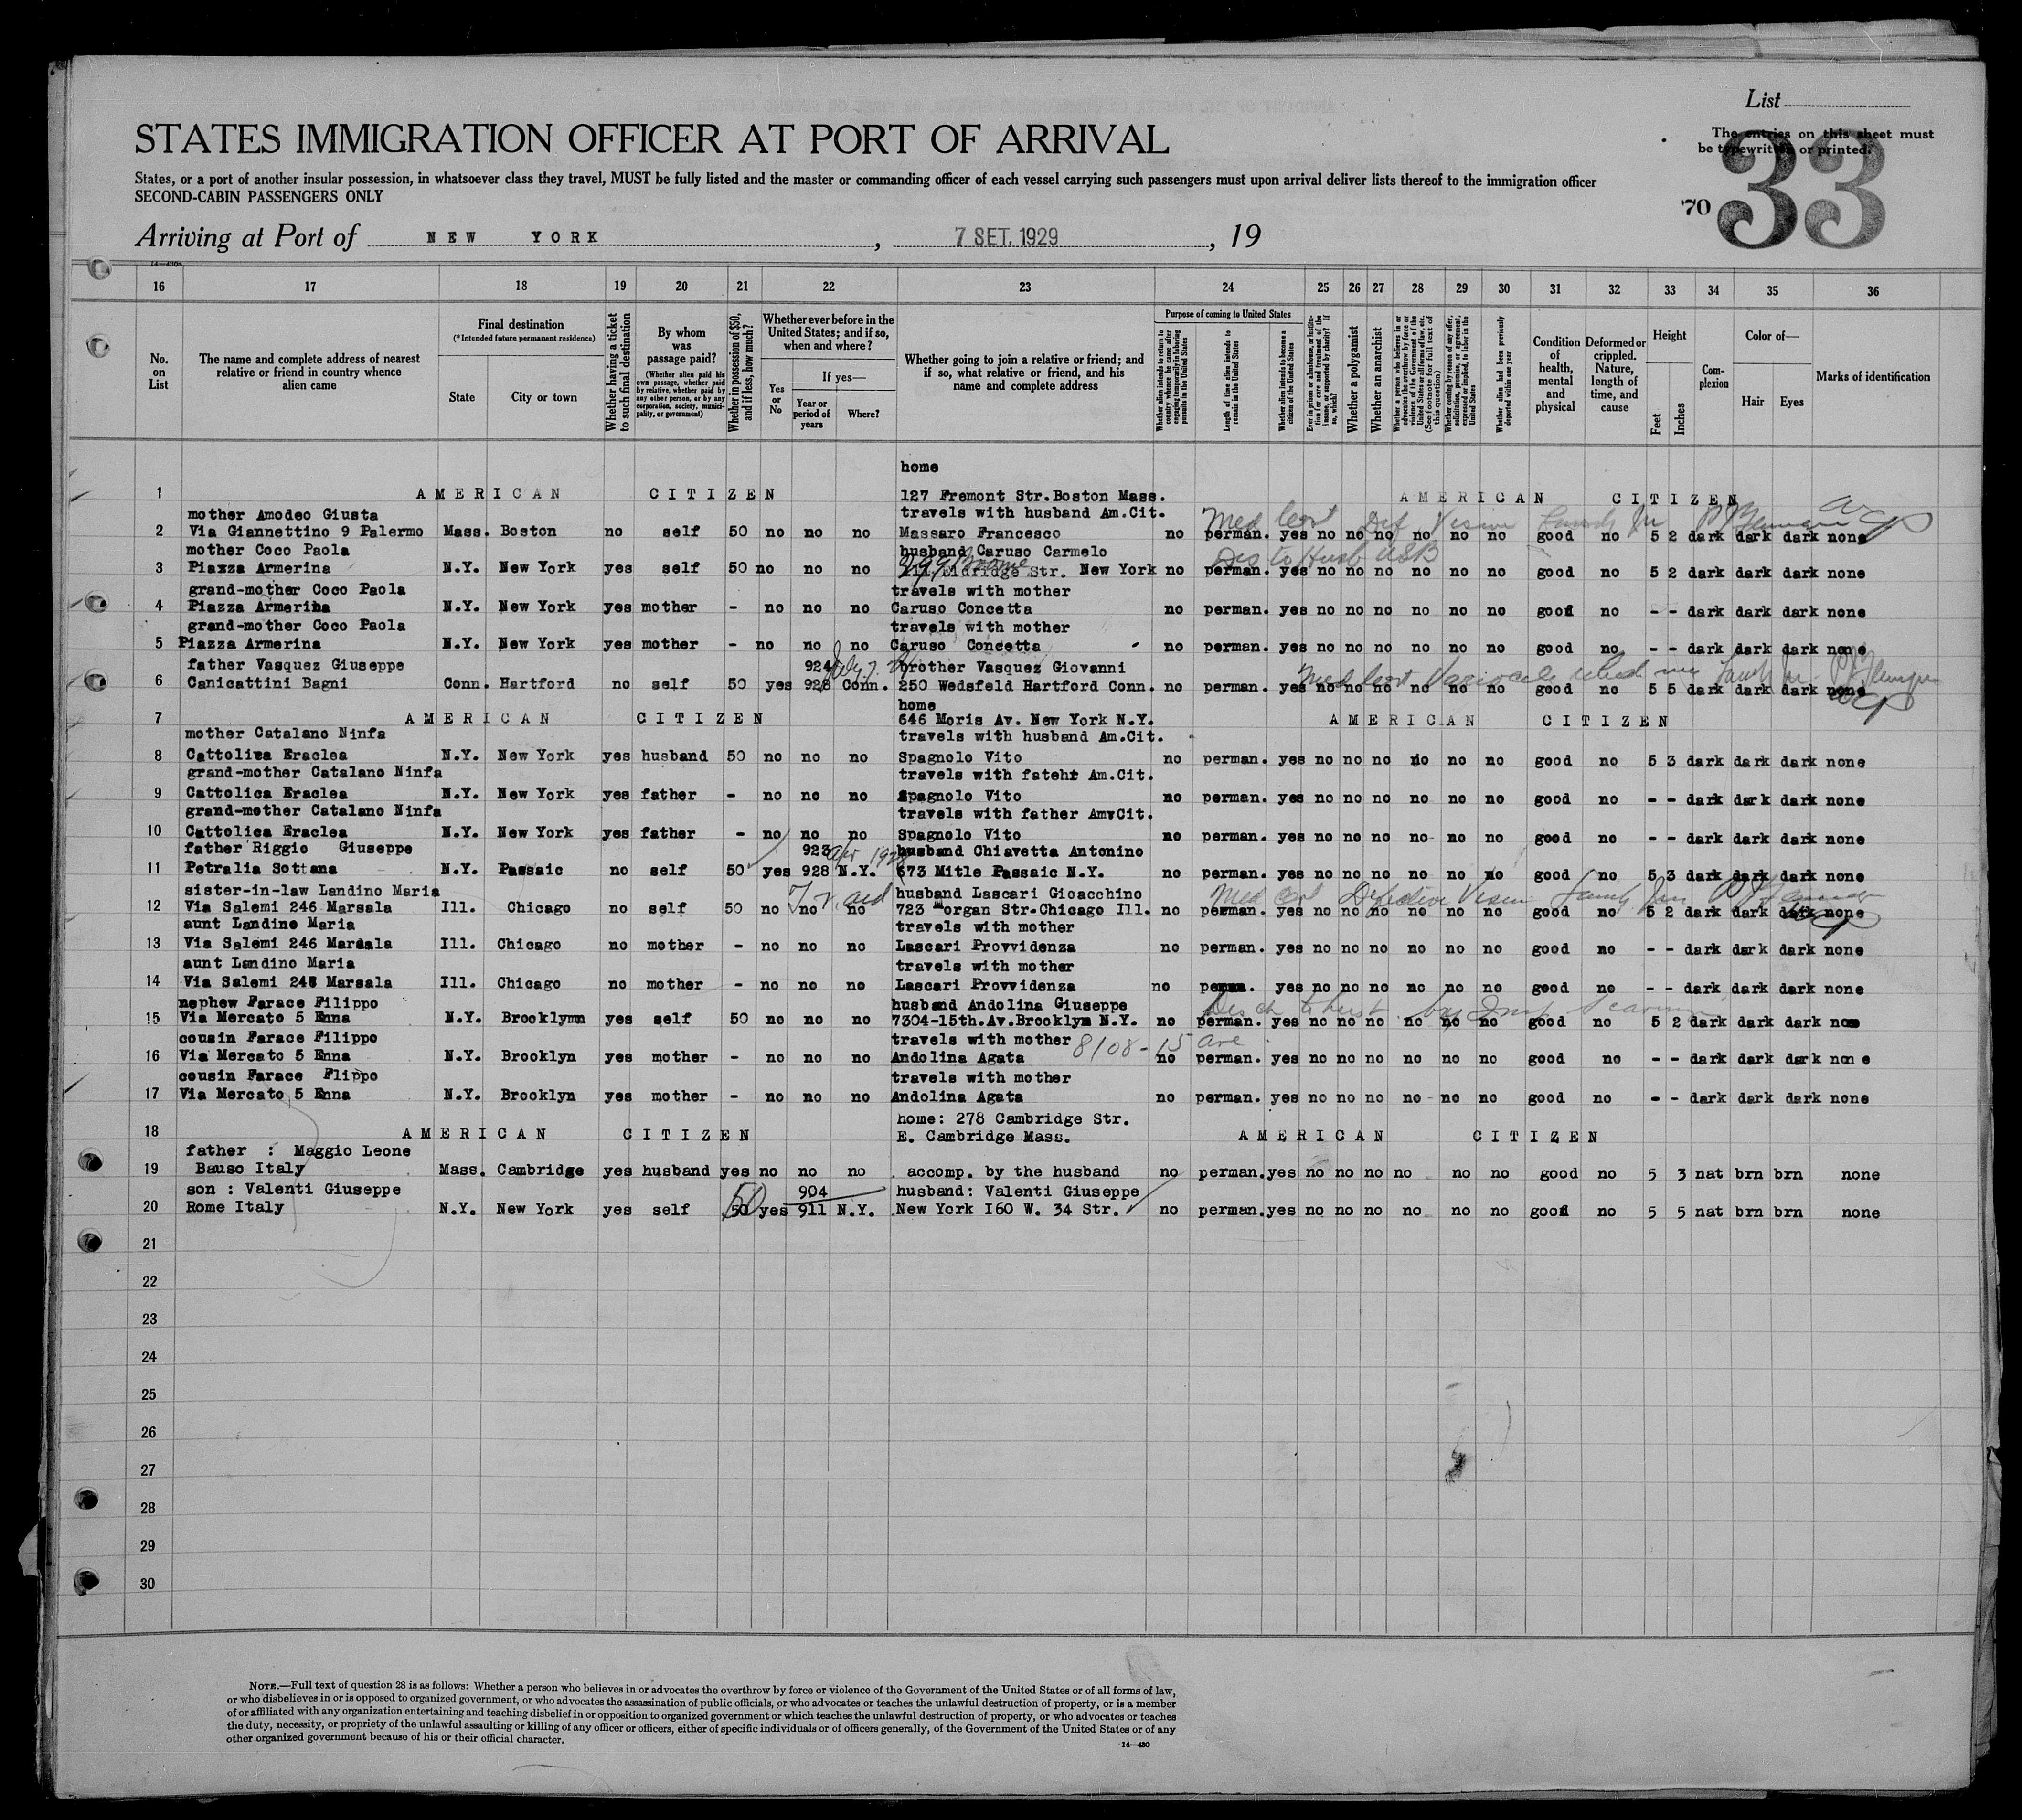 List
The entries on this sheet must
be typewritten or printed.
33
70
STATES IMMIGRATION OFFICER AT PORT OF ARRIVAL
States, or a port of another insular possession, in whatsoever class they travel, MUST be fully listed and the master or commanding officer of each vessel carrying such passengers must upon arrival deliver lists thereof to the immigration officer
SECOND-CABIN PASSENGERS ONLY
Arriving at Port of NEW YORK , 7 SET. 1929 , 19
16 17 18 19 20 21 22 23 24 25 26 27 28 29 30 31 32 33 34 35 36
No. on List
The name and complete address of nearest relative or friend in country whence alien came
Final destination (*Intended future permanent residence) State City or town
Whether having a ticket to such final destination
By whom was passage paid? (Whether alien paid his own passage, whether paid by relative, whether paid by any other person, or by any corporation, society, municipality, or government)
Whether in possession of $50, and if less, how much?
Whether ever before in the United States; and if so, when and where? Yes or No If yes— Year or period of years Where?
Whether going to join a relative or friend; and if so, what relative or friend, and his name and complete address
Purpose of coming to United States
Whether alien intends to return to country whence he came after engaging temporarily in laboring pursuits in the United States
Length of time alien intends to remain in the United States
Whether alien intends to become a citizen of the United States
Ever in prison or almshouse, or institution for care and treatment of the insane, or supported by charity? If so, which?
Whether a polygamist
Whether an anarchist
Whether a person who believes in or advocates the overthrow by force or violence of the Government of the United States or all forms of law, etc. (See footnote for full text of this question)
Whether coming by reason of any offer, solicitation, promise, or agreement, expressed or implied, to labor in the United States
Whether alien had been previously deported within one year
Condition of health, mental and physical
Deformed or crippled. Nature, length of time, and cause
Height Feet Inches
Complexion
Color of— Hair Eyes
Marks of identification
home
1 AMERICAN CITIZEN 127 Fremont Str.Boston Mass. AMERICAN CITIZEN
mother Amodeo Giusta travels with husband Am.Cit. Med Cert Def Vision
2 Via Giannettino 9 Palermo Mass. Boston no self 50 no no no Massaro Francesco no perman. yes no no no no no no good no 5 2 dark dark dark none
mother Coco Paola husband Caruso Carmelo Dis to Husb
3 Piazza Armerina N.Y. New York yes self 50 no no no 299 Broome Eldridge Str. New York no perman. yes no no no no no no good no 5 2 dark dark dark none
grand-mother Coco Paola travels with mother
4 Piazza Armerina N.Y. New York yes mother - no no no Caruso Concetta no perman. yes no no no no no no good no - - dark dark dark none
grand-mother Coco Paola travels with mother
5 Piazza Armerina N.Y. New York yes mother - no no no Caruso Concetta no perman. yes no no no no no no good no - - dark dark dark none
father Vasquez Giuseppe 924 brother Vasquez Giovanni Med Cert Varicocele
6 Canicattini Bagni Conn. Hartford no self 50 yes 928 Conn. 250 Wedsfeld Hartford Conn. no perman. yes no no no no no no good no 5 5 dark dark dark none
home
7 AMERICAN CITIZEN 646 Moris Av. New York N.Y. AMERICAN CITIZEN
mother Catalano Ninfa travels with husband Am.Cit.
8 Cattolica Eraclea N.Y. New York yes husband 50 no no no Spagnolo Vito no perman. yes no no no no no no good no 5 3 dark dark dark none
grand-mother Catalano Ninfa travels with fateht Am.Cit.
9 Cattolica Eraclea N.Y. New York yes father - no no no Spagnolo Vito no perman. yes no no no no no no good no - - dark dark dark none
grand-mother Catalano Ninfa travels with father AmvCit.
10 Cattolica Eraclea N.Y. New York yes father - no no no Spagnolo Vito no perman. yes no no no no no no good no - - dark dark dark none
father Riggio Giuseppe 923 Apr 1928 husband Chiavetta Antonino
11 Petralia Sottana N.Y. Passaic no self 50 yes 928 N.Y. 673 Mitle Passaic N.Y. no perman. yes no no no no no no good no 5 3 dark dark dark none
sister-in-law Landino Maria husband Lascari Gioacchino Med Cert Defective Vision
12 Via Salemi 246 Marsala Ill. Chicago no self 50 no no no 723 Morgan Str.Chicago Ill. no perman. yes no no no no no no good no 5 2 dark dark dark none
aunt Landino Maria travels with mother
13 Via Salemi 246 Marsala Ill. Chicago no mother - no no no Lascari Provvidenza no perman. yes no no no no no no good no - - dark dark dark none
aunt Landino Maria travels with mother
14 Via Salemi 246 Marsala Ill. Chicago no mother - no no no Lascari Provvidenza no perman. yes no no no no no no good no - - dark dark dark none
nephew Farace Filippo husband Andolina Giuseppe Disch to husb by Insp
15 Via Mercato 5 Enna N.Y. Brooklymn yes self 50 no no no 7304-15th.Av.Brooklyn N.Y. no perman. yes no no no no no no good no 5 2 dark dark dark none
cousin Farace Filippo travels with mother 8108-15 ave
16 Via Mercato 5 Enna N.Y. Brooklyn yes mother - no no no Andolina Agata no perman. yes no no no no no no good no - - dark dark dark none
cousin Farace Flippo travels with mother
17 Via Mercato 5 Enna N.Y. Brooklyn yes mother - no no no Andolina Agata no perman. yes no no no no no no good no - - dark dark dark none
home: 278 Cambridge Str.
18 AMERICAN CITIZEN E. Cambridge Mass. AMERICAN CITIZEN
father : Maggio Leone
19 Bauso Italy Mass. Cambridge yes husband yes no no no accomp. by the husband no perman.yes no no no no no no good no 5 3 nat brn brn none
son : Valenti Giuseppe 904 husband: Valenti Giuseppe
20 Rome Italy N.Y. New York yes self 50 yes 911 N.Y. New York I60 W. 34 Str. no perman.yes no no no no no no good no 5 5 nat brn brn none
21
22
23
24
25
26
27
28
29
30
NOTE.—Full text of question 28 is as follows: Whether a person who believes in or advocates the overthrow by force or violence of the Government of the United States or of all forms of law,
or who disbelieves in or is opposed to organized government, or who advocates the assassination of public officials, or who advocates or teaches the unlawful destruction of property, or is a member
of or affiliated with any organization entertaining and teaching disbelief in or opposition to organized government or which teaches the unlawful destruction of property, or who advocates or teaches
the duty, necessity, or propriety of the unlawful assaulting or killing of any officer or officers, either of specific individuals or of officers generally, of the Government of the United States or of any
other organized government because of his or their official character.
14—430